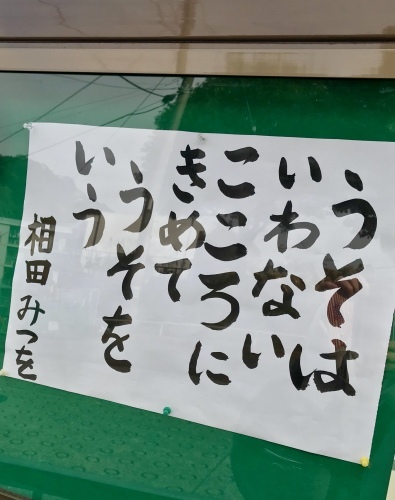 うそは
いわない
こころに
きめて
うそを
いう
相田みつを